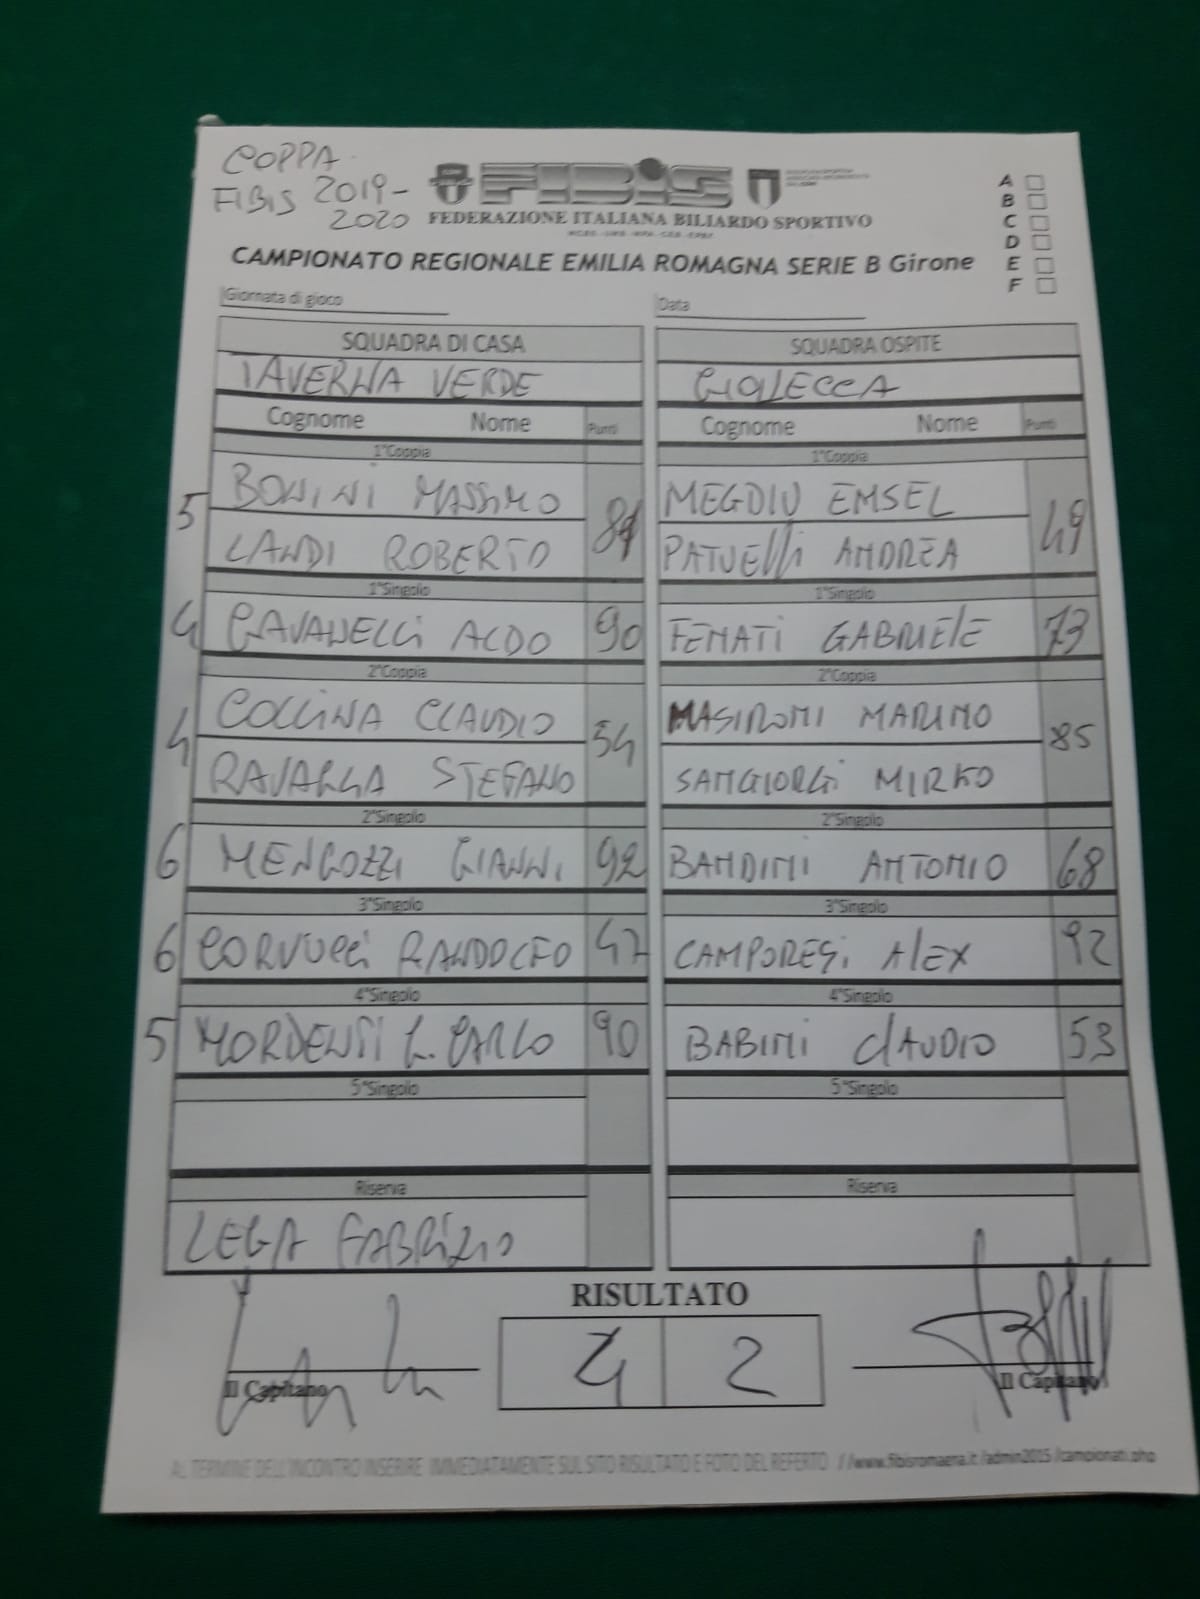 COPPA
FIBIS 2019-
2020
FIBIS
FEDERAZIONE ITALIANA BILIARDO SPORTIVO
CAMPIONATO REGIONALE EMILIA ROMAGNA SERIE B Girone
A
B
C
D
E
F
Giornata di gioco
Data
SQUADRA DI CASA SQUADRA OSPITE
TAVERNA VERDE GIOLECCA
Cognome Nome Punti Cognome Nome Punti
1°Coppia 1°Coppia
5 BONINI MASSIMO MEGDIU EMSEL
LANDI ROBERTO PATUElli ANDREA 49
1°Singolo 1°Singolo
4 GAVANELLi ALDO 90 FENATi GABRIELE 73
2°Coppia 2°Coppia
4 COLLINA CLAUDIO 54 MASIRONI MARINO 85
RAVAGLIA STEFANO SANGIORGi MIRKO
2°Singolo 2°Singolo
6 MENGOZZI GIANNI 92 BANDINI ANTONIO 68
3°Singolo 3°Singolo
6 CORVUCCi RANDOLFO 47 CAMPORESi AlEX 92
4°Singolo 4°Singolo
5 MORDENTI G. CARLO 90 BABINI ClAUDIO 53
5°Singolo 5°Singolo
Riserva Riserva
LEGA FABRIZIO
RISULTATO
4 2
Il Capitano Il Capitano
AL TERMINE DELL'INCONTRO INSERIRE IMMEDIATAMENTE SUL SITO RISULTATO E FOTO DEL REFERTO //www.fibisromagna.it/admin2015/campionati.php